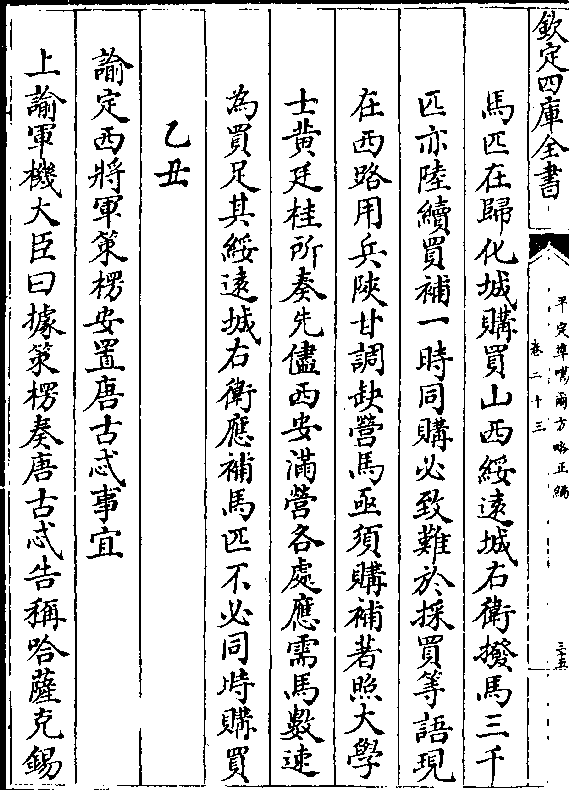 欽定四庫全書
平定準噶爾方略正編
卷二十三
三十五
馬匹在歸化城購買山西綏遠城右衛撥馬三千
匹亦陸續買補一時同購必致難於採買等語現
在西路用兵陝甘調缺營馬亟須購補著照大學
士黃廷桂所奏先儘西安滿營各處應需馬數速
為買足其綏遠城右衛應補馬匹不必同時購買
乙丑
諭定西將軍策楞安置唐古忒事宜
上諭軍機大臣曰據策楞奏唐古忒告稱哈薩克錫